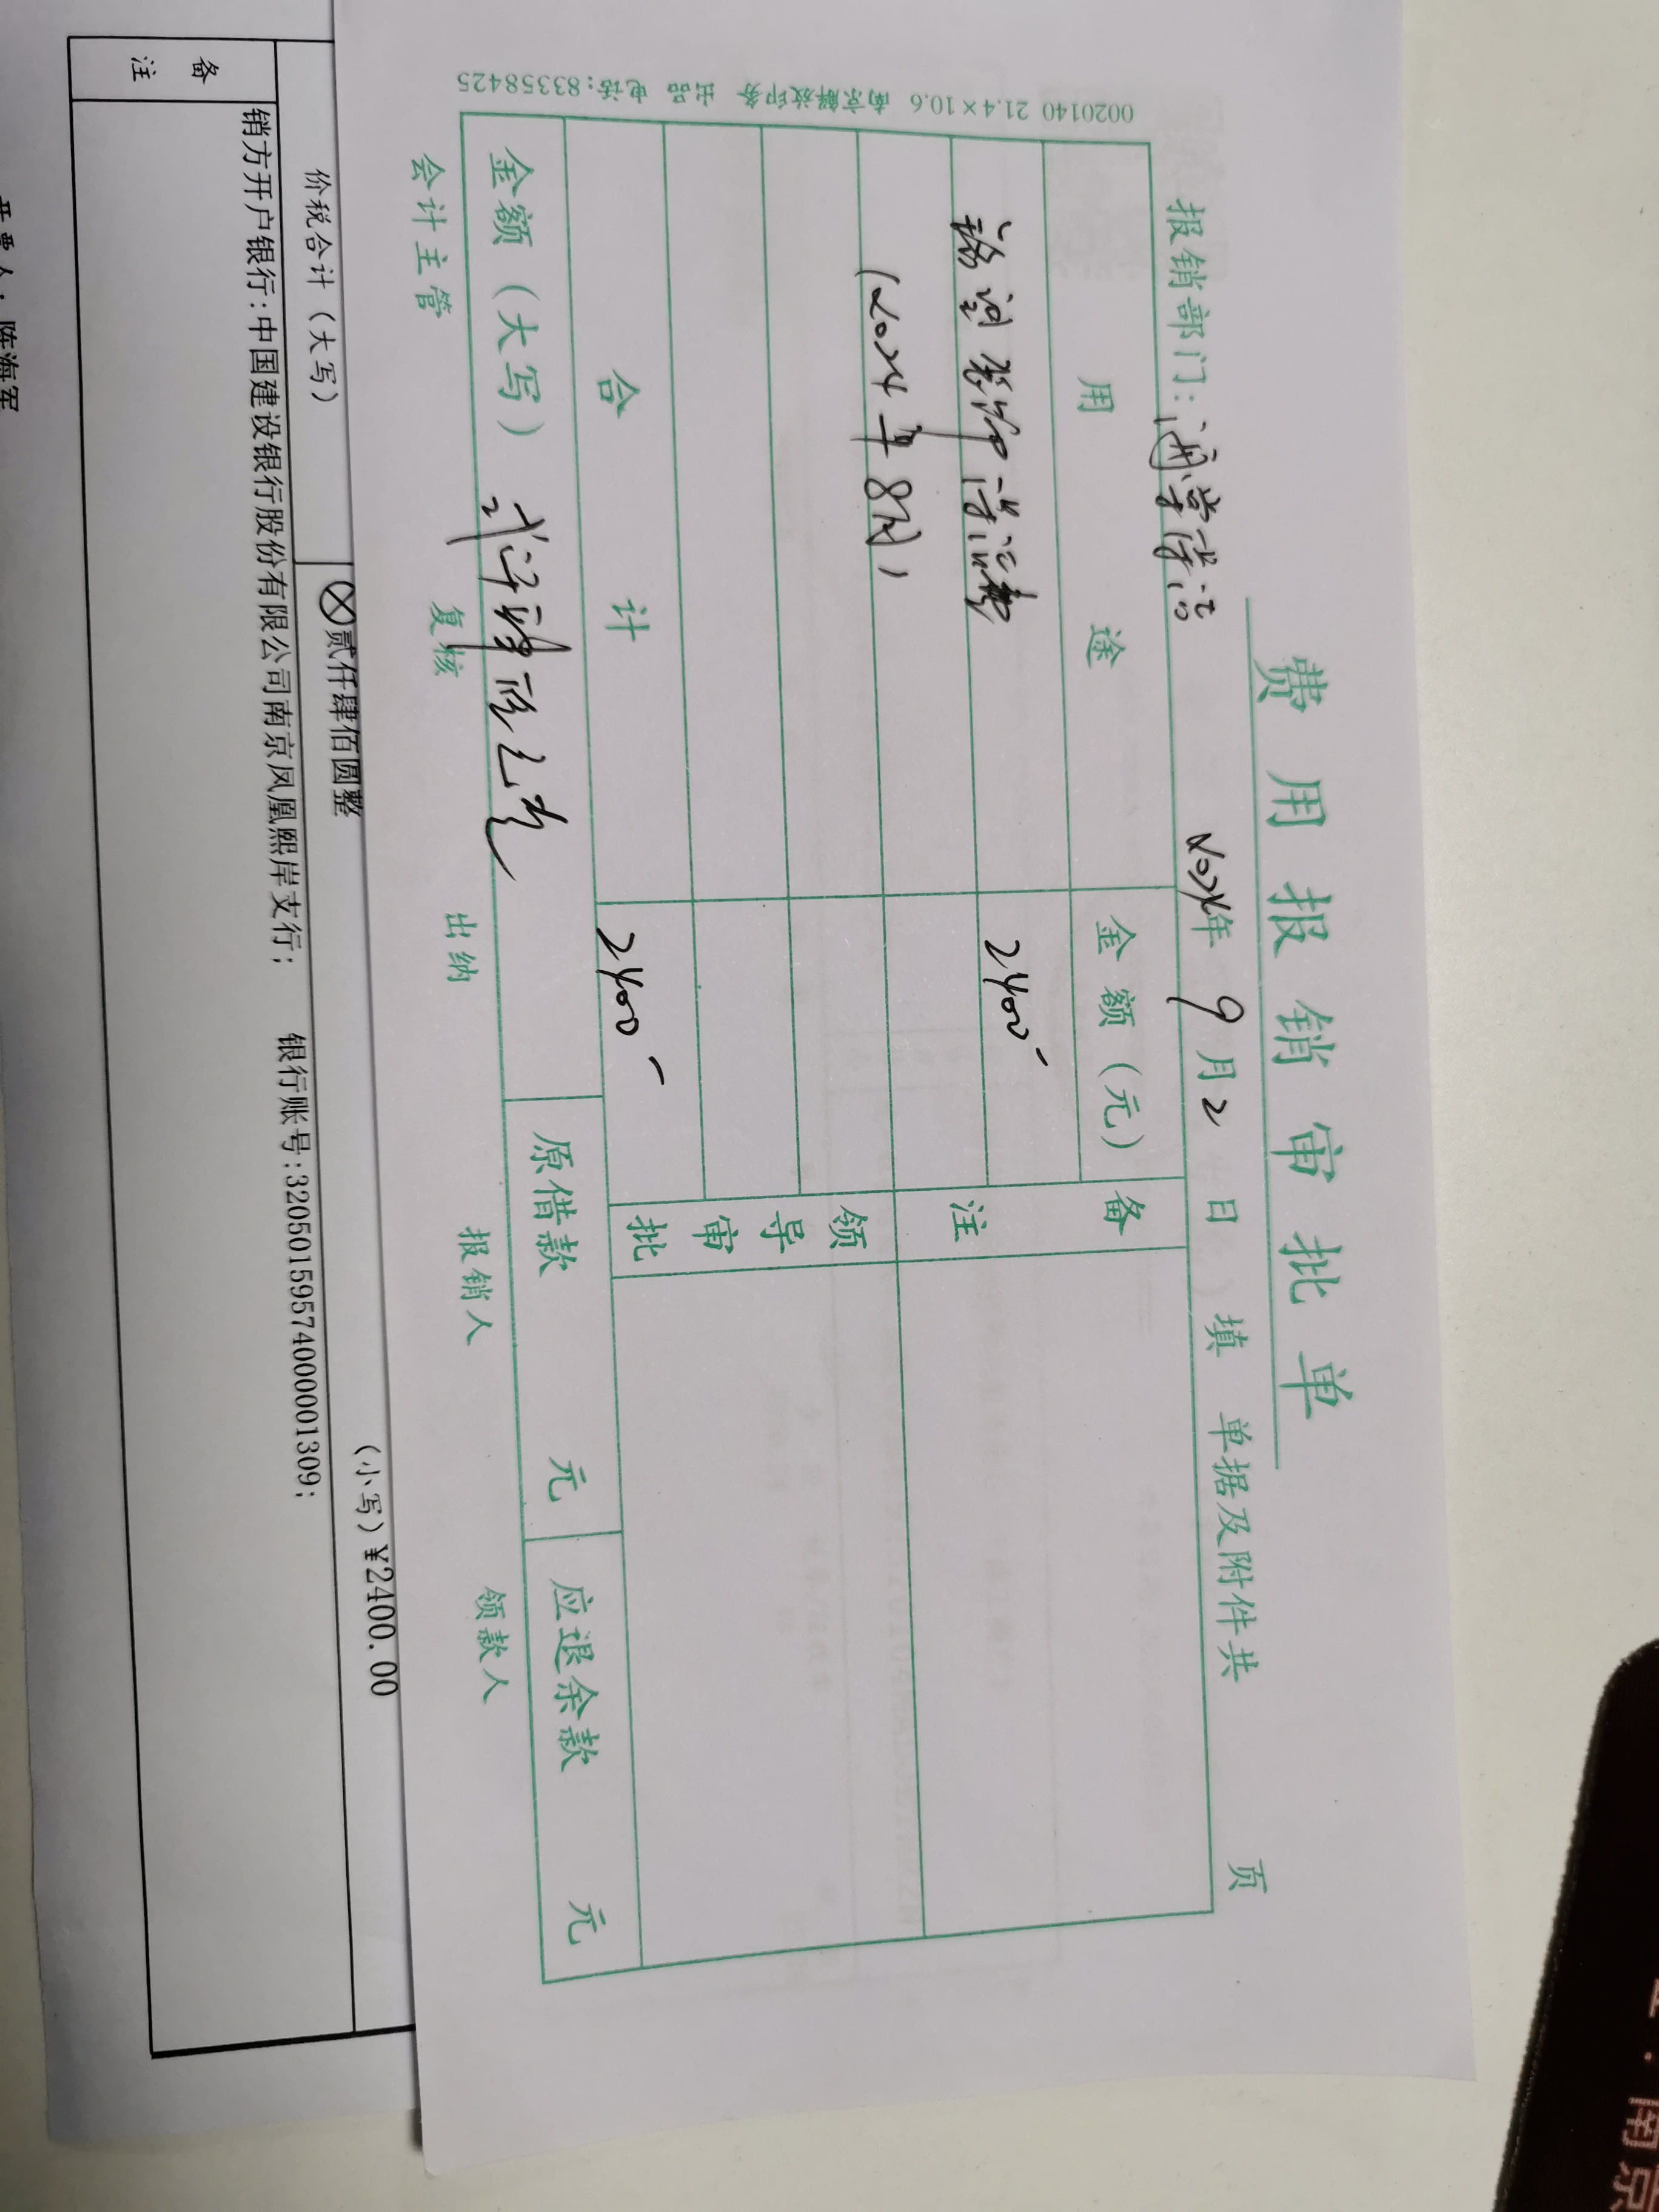 费用报销审批单
报销部门: 2024年 9月2日 填 单据及附件共 页
用途 金额(元) 备注
2400-
(2024年8月)
领导审批
合计 2400-
金额(大写) 贰仟肆佰元整 原借款 元 应退余款 元
会计主管 复核 出纳 报销人 领款人
0020140 21.4×10.6 南京解放印务 出品 电话:83358425
价税合计(大写) ⊗贰仟肆佰圆整 (小写)¥2400.00
备注
销方开户银行:中国建设银行股份有限公司南京凤凰熙岸支行; 银行账号:32050159574000001309;
开票人:陈海军
南京